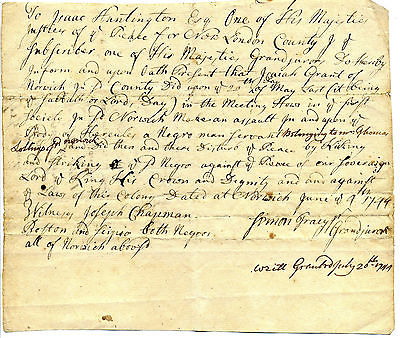 To Isaac Huntington Esq One of His Majties
Justices of ye Peace for New London County I ye
Subscriber one of His Majties Grandjurors Do hereby
Inform and upon oath Present that Isaiah Grant of
Norwich in sd County Did upon ye 20th Day of May Last (it being
ye Sabbath or Lords Day) in the Meeting Hows in ye first
Society In sd Norwich Make an assault In and upon ye
Body of Hercules a Negro man Servant belonging to mr Thomas
Lathrop
and Did then and there Disturb ye Peace by Kicking
and Striking ye sd Negro against ye Peace of our Sovereign
Lord ye King His Crown and Dignity and against
ye Laws of this Colony Dated at Norwich June ye 1744
Witness Joseph Chapman
Simon Tracy
Grandjuror
Boston and both Negros
all of Norwich abovsd
Writt Granted July 20th 1744